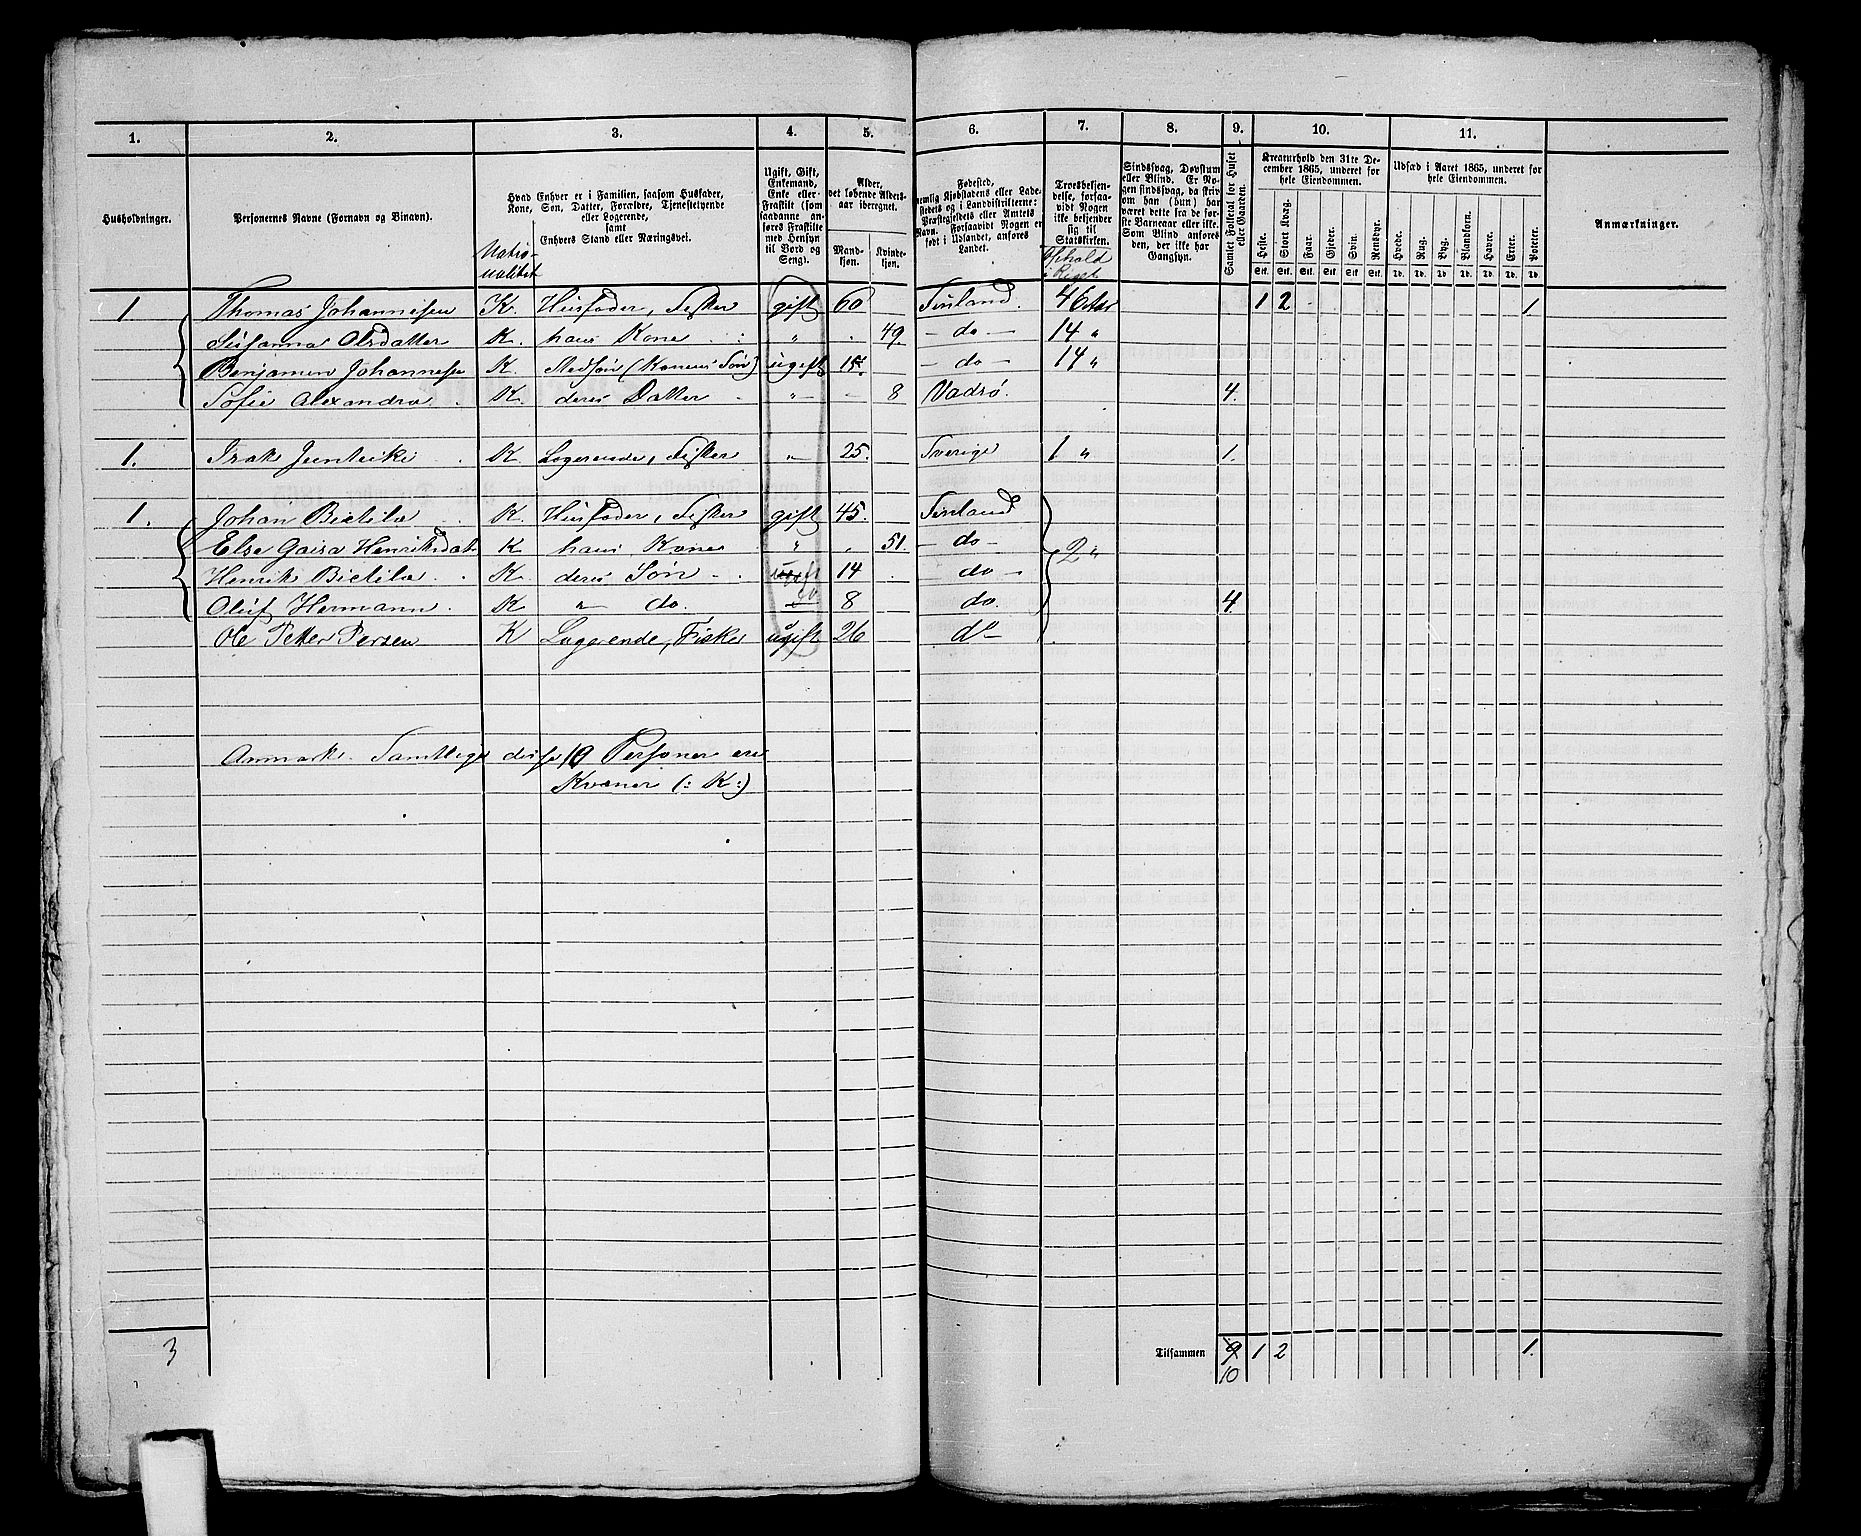 1. 2. 3. 4. 5. 6. 7. 8. 9. 10. 11.
Husholdninger.
Personernes Navne (Fornavn og Binavn).
Natio-
nalitet
Hvad Enhver er i Familien, saasom Husfader,
Kone, Søn, Datter, Forældre, Tjenestetyende
eller Logerende,
samt
Enhvers Stand eller Næringsvei.
Ugift, Gift,
Enkemand,
Enke eller
Fraskilt (som
saadanne an-
føres Fraskilte
med Hensyn
til Bord og
Seng).
Alder,
det løbende Alders-
aar iberegnet.
Mand-
kjøn.
Kvinde-
kjøn.
Fødested,
nemlig Kjøbstadens eller Lade-
stedets og i Landdistrikterne:
Præstegjeldets eller Amtets
Navn. Forsaavidt Nogen er
født i Udlandet, anføres
Landet.
Troesbekjen-
delse, forsaa-
vidt Nogen
ikke bekjender
sig til
Statskirken.
Ophold
i Riget
Sindssvag, Døvstum
eller Blind. Er No-
gen sindssvag, da skriv
om han (hun) har
været dette fra de før-
ste Barneaar eller ikke.
Som Blind anføres
den, der ikke har
Gangsyn.
Samlet Folketal for Huset
eller Gaarden.
Kreaturhold den 31te De-
cember 1865, underet for
hele Eiendommen.
Heste. Stort Kvæg. Faar. Gjeder. Svin. Rensdyr.
Stk. Stk. Stk. Stk. Stk. Stk.
Udsæd i Aaret 1865, underet for
hele Eiendommen.
Hvede. Rug. Byg. Blandkorn. Havre. Erter. Poteter.
Td. Td. Td. Td. Td. Td. Td.
Anmærkninger.
1 Thomas Johannesen K. Husfader, Fisker gift 60 Finland. 4 Etar 1 2 1
Susanna Olsdatter K. hans Kone " 49. – do – 14 "
Benjamin Johannesen K. Stedsøn (Konens Søn) ugift 15. – do – 14 "
Sofie Alexandra K. deres Datter – " – – 8 Vadsø. 4.
1. Isak Juntiki K. Logerende, Fisker " 25. Sverige 1 " 1.
1. Johan Bietila K. Husfader, Fisker gift 45. Finland
Else Gaisa Henriksdat K hans Kone " . 51. – do – 2 "
Henrik Bietila K. deres Søn ugift 14 do –
Oluf Hermann K " do. do 8 do. 4
Ole Petter Persen K Logerende, Fisker ugift 26 do
Anmærk. Samtlige disse 10 Personer ere
Kvæner (: K :)
3 Tilsammen 9 1 2 1.
10